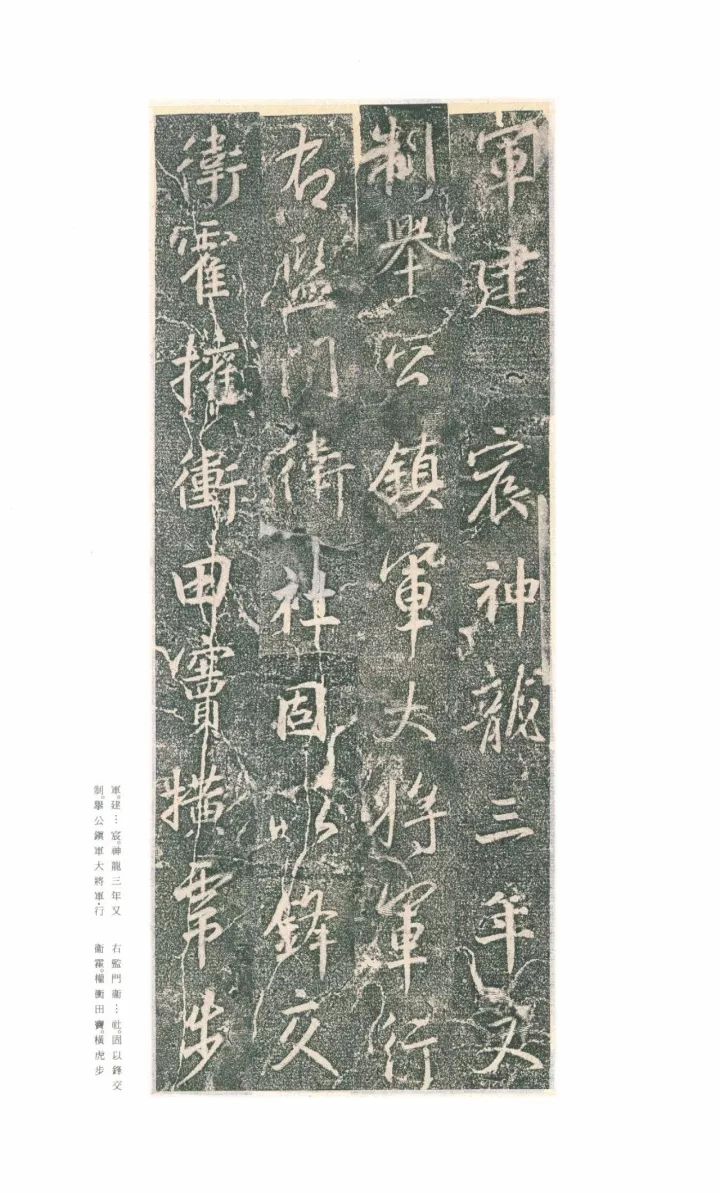 軍建宸神龍三年又
制舉公鎮軍大將軍行
右監門衛社固以鋒交
衛霍權衡田竇橫虎步
軍。建…宸。神龍三年又
制。舉公鎭軍大將軍・行
右監門衞…社。固以鋒交
衞霍。權衡田竇。橫虎步